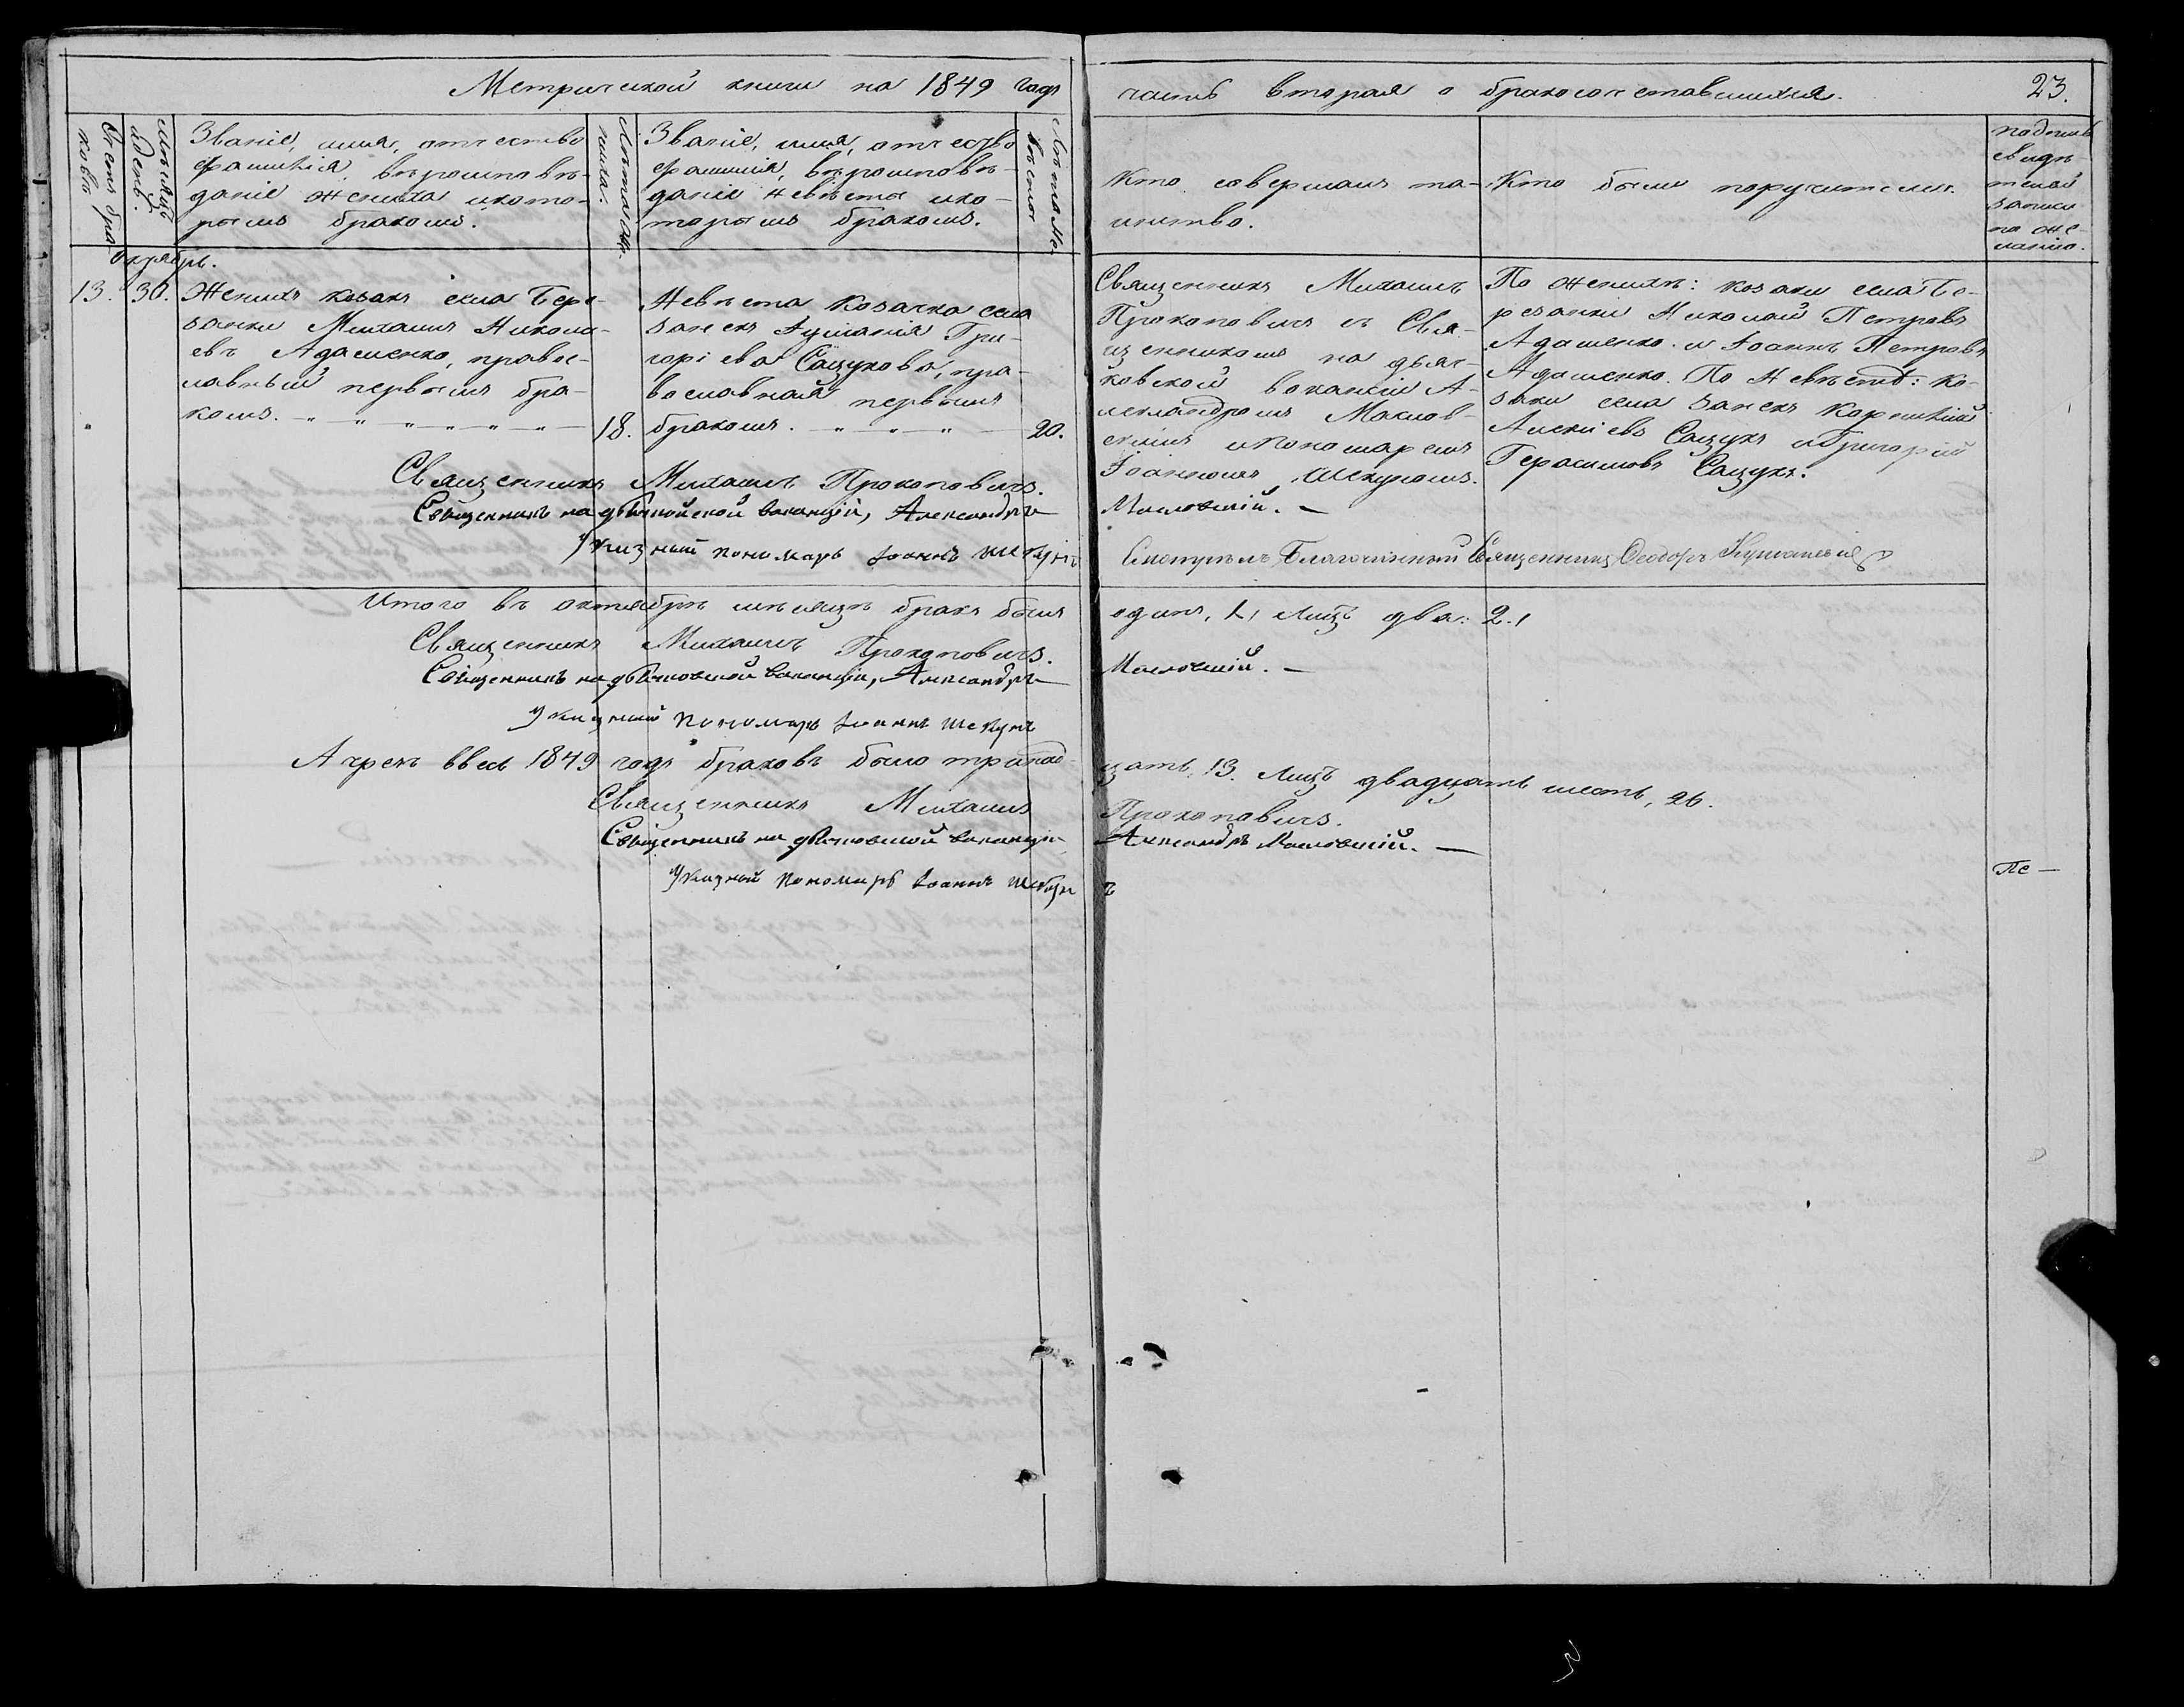 Метрической книги на 1849 годъ
часть вторая о бракосочетавшихся.
23.
Счетъ браковъ.
Мѣсяцъ и день.
Званіе, имя, отчество
фамилія, вѣроисповѣ-
даніе жениха и кото-
рымъ бракомъ.
Лѣта жениха.
Званіе, имя, отчество
фамилія, вѣроисповѣ-
даніе невѣсты и ко-
торымъ бракомъ.
Лѣта невѣсты
Кто совершалъ та-
инство.
Кто были поручители.
подпись
свидѣ-
телей
записи
по же-
ланію.
Октябрь.
13. 30. Женихъ козакъ села Бере-
занки Михаилъ Никола-
евъ Адаменко, правос-
лавный первымъ бра-
комъ. 18.
Невѣста козачка села
Заезъ Гри-
горіева Сацукова, пра-
вославная первымъ
бракомъ. 20.
Священникъ Михаилъ
Прокоповичъ съ Свя-
щенникомъ на дьяч-
ковской вакансіи А-
лександромъ Маслов-
скимъ и пономаремъ
Іоанномъ Шекуномъ.
По женихѣ: козаки села Бе-
резанки Николай Петровъ
Адаменко и Іоаннъ Петровъ
Адаменко. По невѣстѣ: ко-
заки села Корнилій
Алексіевъ Сацукъ и Григорій
Герасимовъ Сацукъ.
Священникъ Михаилъ Прокоповичъ.
Священникъ на дьячковской вакансіи, Александръ Масловскій. —
Указный пономарь Іоаннъ Шекунъ
Смотрѣлъ Благочинный Священникъ Ѳеодоръ
Итого въ октябрѣ мѣсяцѣ бракъ былъ одинъ, 1, лицъ два: 2.
Священникъ Михаилъ Прокоповичъ.
Священникъ на дьячковской вакансіи, Александръ Масловскій. —
Указный пономарь Іоаннъ Шекунъ
А чрезъ весь 1849 годъ браковъ было тринад-
цать, 13. лицъ двадцать шесть, 26.
Священникъ Михаилъ Прокоповичъ.
Священникъ на дьячковской вакансіи Александръ Масловскій. —
Указный пономарь Іоаннъ Шекунъ
Пе —